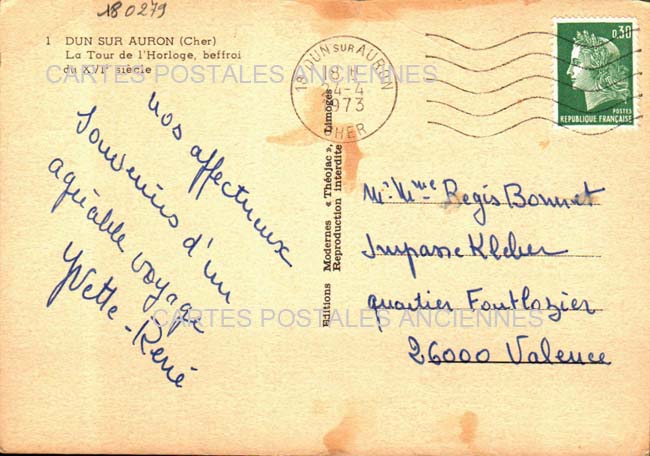 180279
1 DUN SUR AURON (Cher)
La Tour de l'Horloge, beffroi
du XVIe siècle
CARTES POSTALES ANCIENNES
nos affectueux
souvenirs d'un
agréable voyage
Yvette - René
Editions Modernes « Théojac », Limoges
Reproduction interdite
18 DUN SUR AURON
18 H
24-4
1973
CHER
0,30
POSTES
REPUBLIQUE FRANÇAISE
Mr. Mme Regis Bonnet
Impasse Kleber
quartier Fontlozier
26000 Valence
CARTES POSTALES ANCIENNES